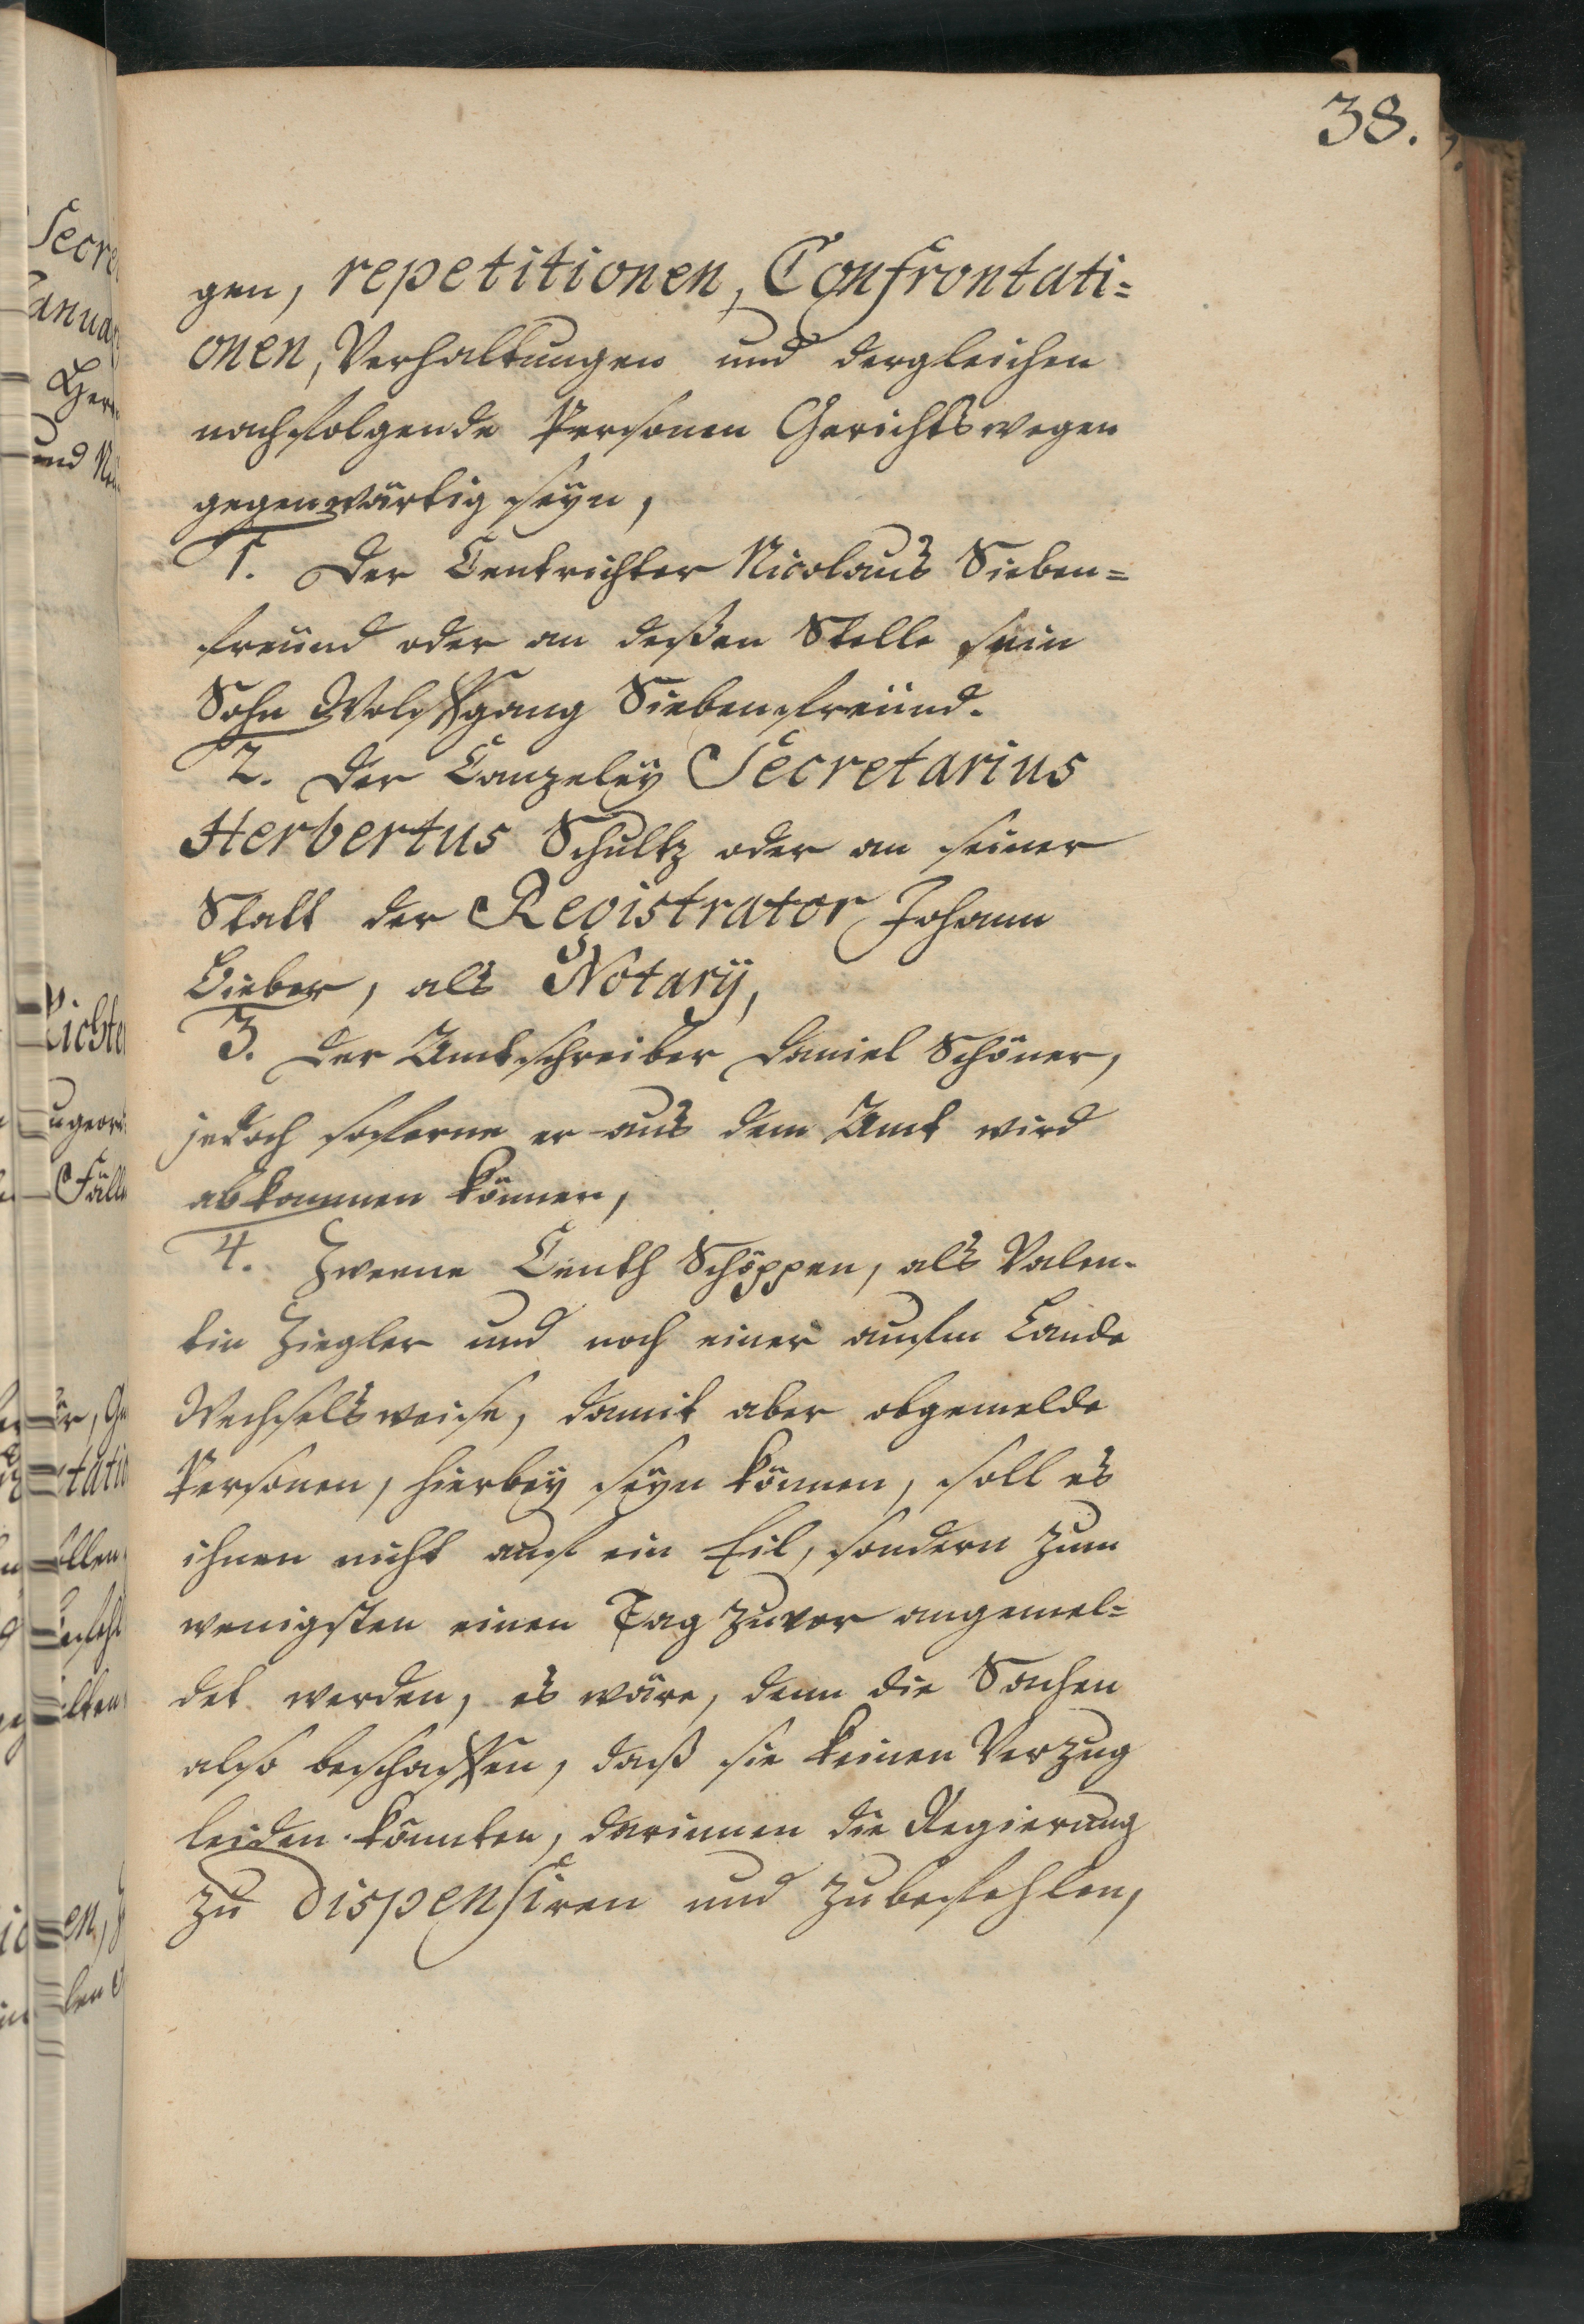 38.
gen, repetitionen, Confrontati=
onen, Verhaltungen und dergleichen
nachfolgende Personen Gerichtswegen
gegenwärtig seÿn,
1. Der Centrichter Nicolaus Sieben=
freund oder an deßen Stelle sein
Sohn Wolffgang Siebenfreund.
2. Der Canzeleÿ Secretarius
Herbertus Schultz oder an seiner
Statt der Registrator Johann
Bieber, als Notarÿ,
3. Der Amtschreiber Daniel Schöner,
jedoch soferne er aus dem Amt wird
abkommen können,
4. Zweene Centh Schöppen, als Valen-
tin Ziegler und noch einer aufm Lande
Wechselsweise, damit aber obgemelde
Personen, hierbeÿ seÿn können, soll es
ihnen nicht auf ein Eil, sondern zum
wenigsten einen Tag zuvor angemel=
det werden, es wäre, denn die Sachen
also beschaffen, daß sie keinen Verzug
leiden könnten, darinnen die Regierung
zu dispensiren und zubefehlen,
Secre
Janua
Her
und